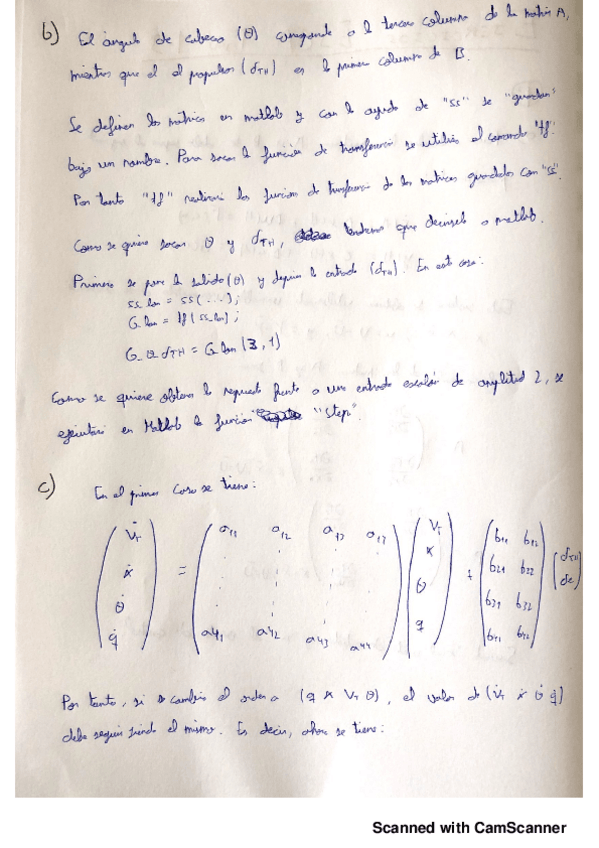 b) El ángulo de cabeceo (θ) corresponde a la tercera columna de la matriz A,
mientras que el del propulsor (δTH) es la primera columna de B.
Se definen las matrices en matlab y con la ayuda de "ss" se "guardan"
bajo un nombre. Para sacar la función de transferencia se utiliza el comando "tf".
Por tanto "tf" realizará la función de transferencia de las matrices guardadas con "ss".
Como se quiere sacar θ y δTH, tendremos que decírselo a matlab.
Primero se pone la salida (θ) y después la entrada (δTH). En este caso:
ss_lon = ss(...);
G_lon = tf(ss_lon);
G_θ_δTH = G_lon(3,1)
Como se quiere obtener la respuesta frente a una entrada escalón de amplitud 2, se
ejecutará en Matlab la función "step".
c) En el primer caso se tiene:
V̇T a11 a12 a13 a13 VT b11 b12
α̇ = α + b21 b22 δTH
θ̇ θ b31 b32 δe
q̇ a41 a42 a43 a44 q b41 b42
Por tanto, si se cambia el orden a (q α VT θ), el valor de (V̇T α̇ θ̇ q̇)
debe seguir siendo el mismo. Es decir, ahora se tiene:
Scanned with CamScanner